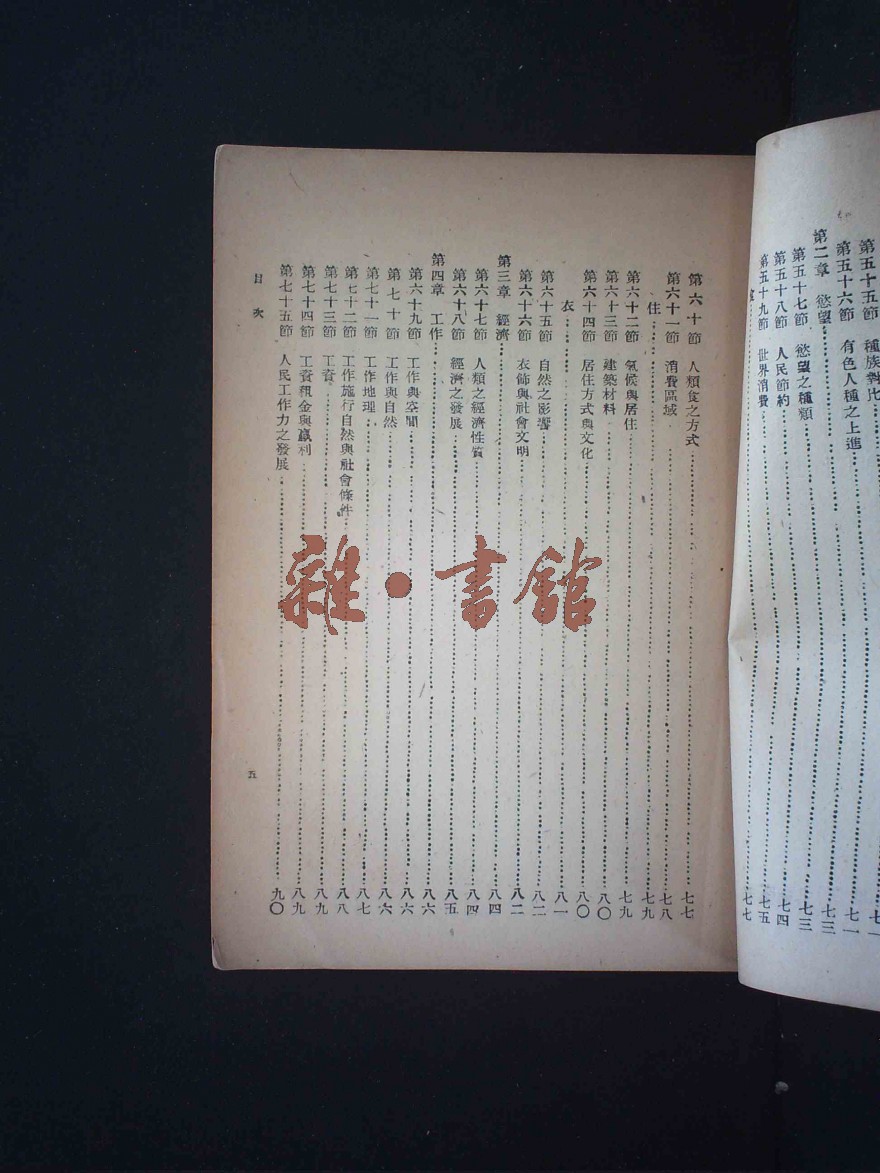 第五十五節　種族對比…………七一
第五十六節　有色人種之上進…………七一
第二章　慾望…………七三
第五十七節　慾望之種類…………七三
第五十八節　人民節約…………七四
第五十九節　世界消費…………七五
食…………七七
第六十節　人類食之方式…………七七
第六十一節　消費區域…………七八
住…………七九
第六十二節　氣候與居住…………七九
第六十三節　建築材料…………八〇
第六十四節　居住方式與文化…………八〇
衣…………八一
第六十五節　自然之影響…………八二
第六十六節　衣飾與社會文明…………八二
第三章　經濟…………八四
第六十七節　人類之經濟性質…………八四
第六十八節　經濟之發展…………八五
第四章　工作…………八六
第六十九節　工作與空間…………八六
第七十節　工作與自然…………八六
第七十一節　工作地理…………八七
第七十二節　工作施行自然與社會條件…………八八
第七十三節　工資…………八九
第七十四節　工資租金與贏利…………八九
第七十五節　人民工作力之發展…………九〇
目次
五
雜·書館